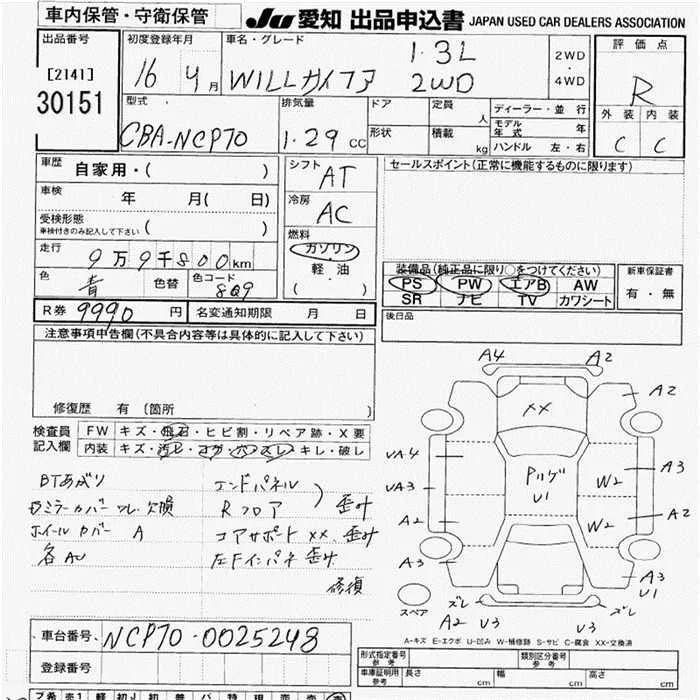 車内保管・守衛保管
JU 愛知 出品申込書 JAPAN USED CAR DEALERS ASSOCIATION
出品番号
[2141]
30151
初度登録年月
16 4月
車名・グレード
WILLサイファ
1.3L
2WD
2WD
・
4WD
評価点
R
外装 内装
C C
型式
CBA-NCP70
排気量
1.29 CC
ドア
形状
定員
人
積載
kg
ディーラー・並行
モデル年式 年
ハンドル 左・右
車歴
自家用・( )
車検
年 月( 日)
受検形態
車検付きのみ記入して下さい ( )
走行
9万9千800km
色
青
色替
色コード
8Q9
シフト
AT
冷房
AC
燃料
ガソリン
軽油
( )
セールスポイント(正常に機能するものに限ります)
装備品(純正品に限り○をつけてください)
PS PW エアB AW
SR ナビ TV カワシート
新車保証書
有・無
後日品
R券 9990 円
名変通知期限 月 日
注意事項申告欄(不具合内容等は具体的に記入して下さい)
修復歴 有 〔箇所 〕
検査員
記入欄
FW キズ・飛石・ヒビ割・リペア跡・X要
内装 キズ・汚レ・コゲ・穴・スレ・キレ・破レ
BTあがり
カバー 欠損
ホイールカバー A
各AU
エンドパネル
Rフロア
歪み
コアサポート XX、歪み
左Fインパネ 歪み
修復
A4
A2
XX
A2
VA4
VA3
A2
A3
U1
W2
W2
A3
A2
A3
U1
スペア
ズレ
A2
V3
V3
ズレ
A-キズ E-エクボ U-凹み W-補修跡 S-サビ C-腐食 XX-交換済
車台番号 NCP70-0025248
登録番号
形式指定番号
参考
類別区分番号
参考
車庫証明用
参考
長さ cm
幅 cm
高さ cm